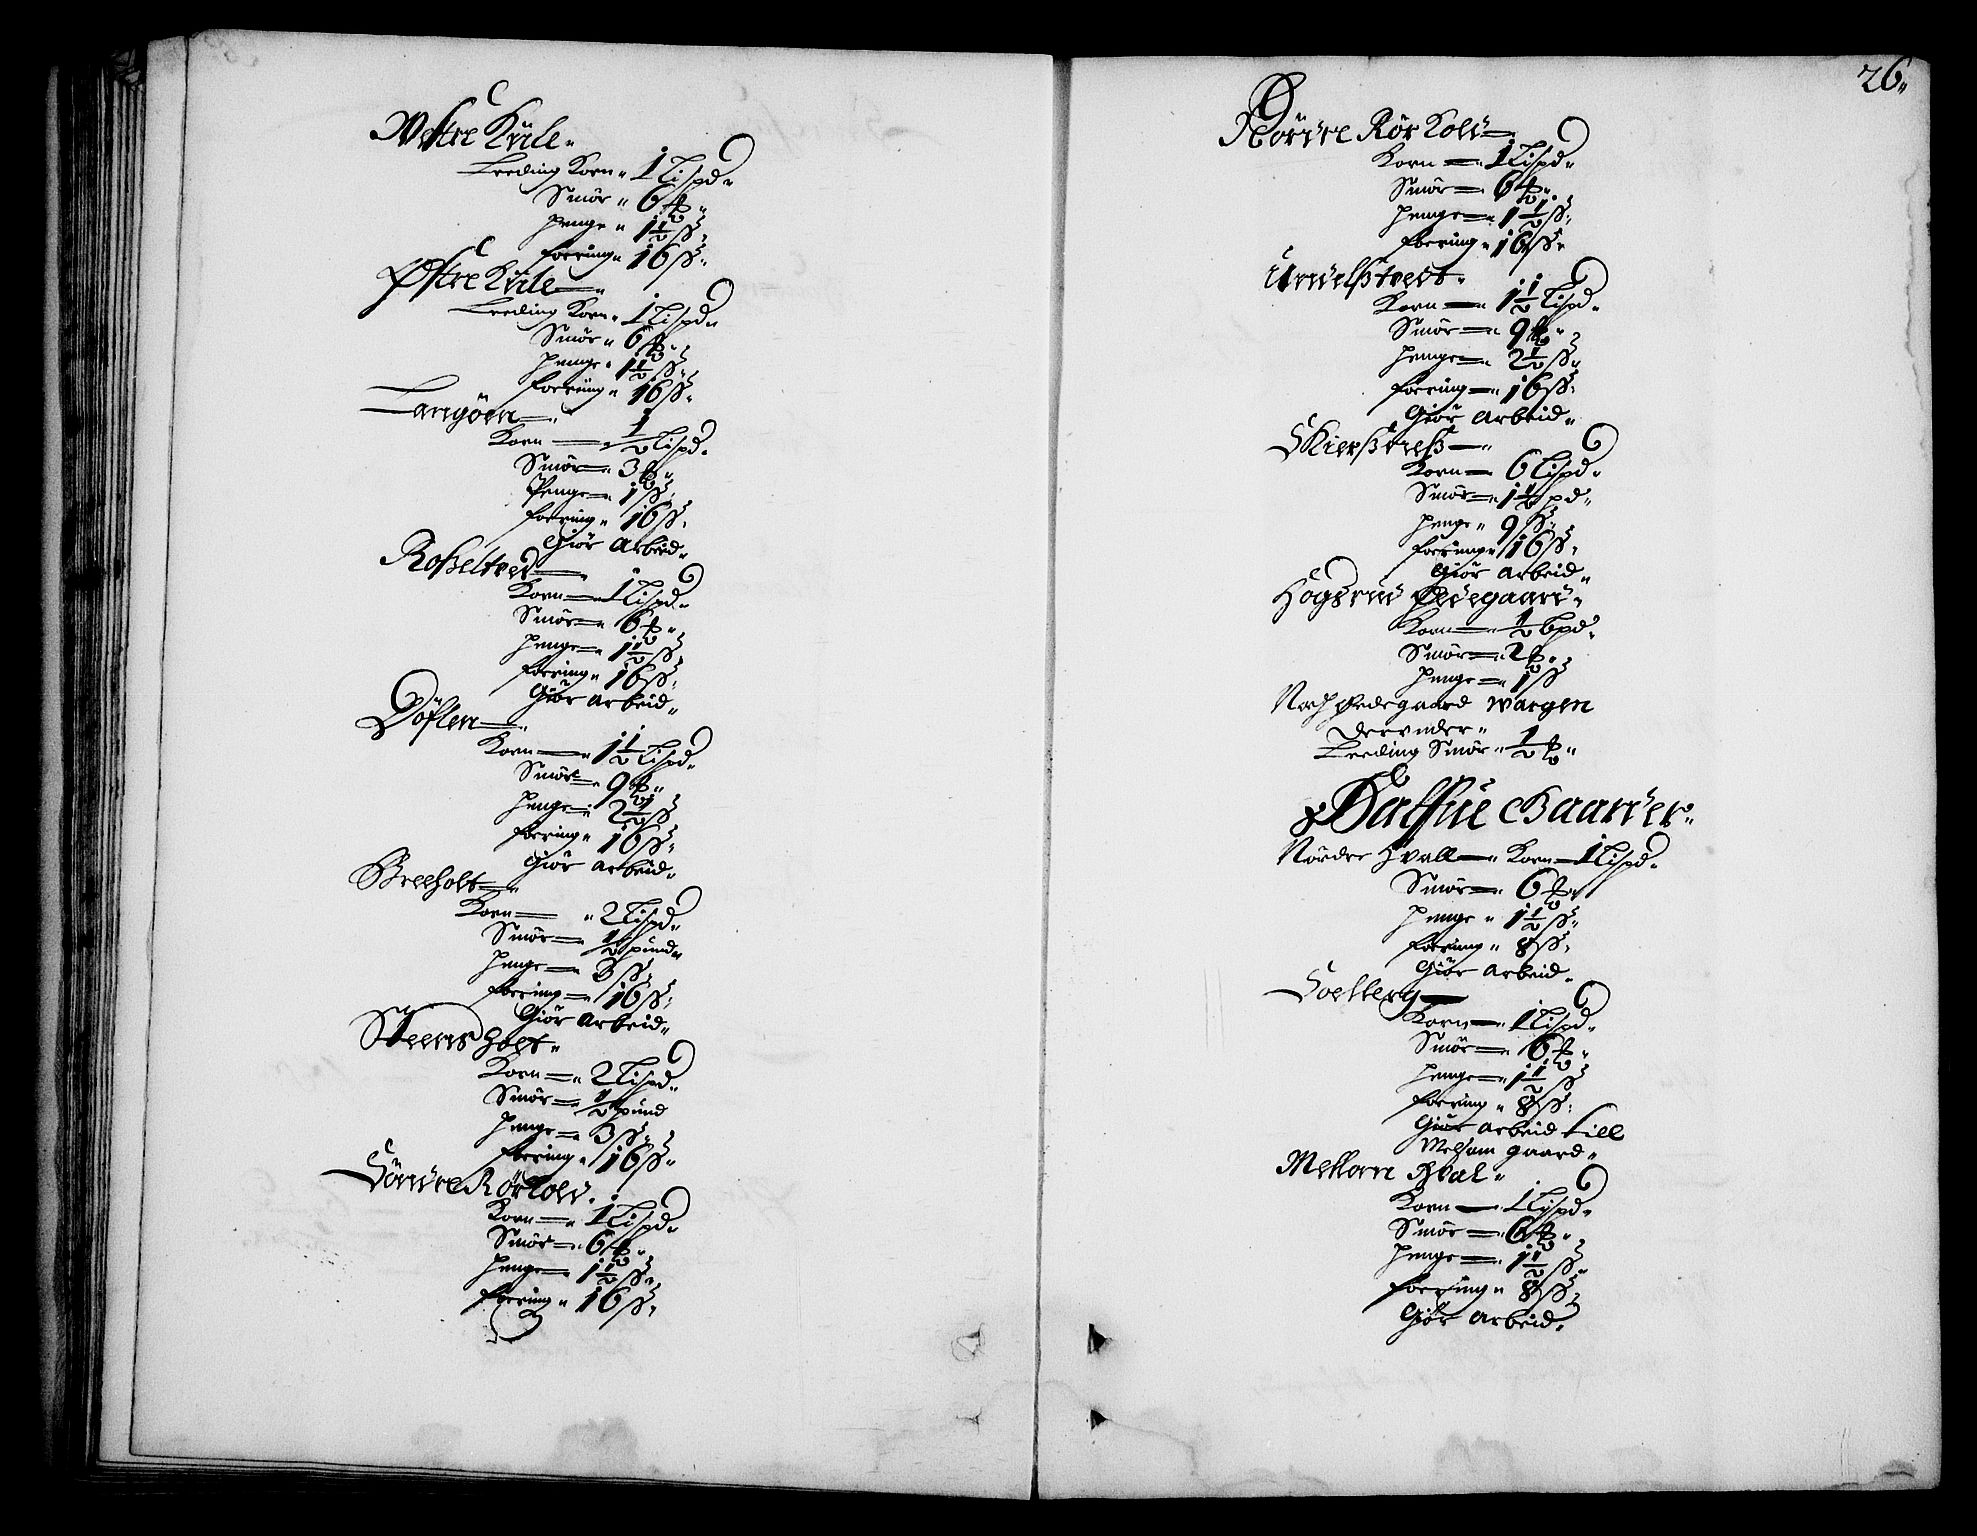 Westre Kiile
Leeding Korn 1 Lispd
Smör 6 ℔
Penge 1½ ss
Foering 16 ss
Östre Kiile
Leeding Korn 1 Lispd
Smör 6 ℔
Penge 1½ ss
Foering 16 ss
Langöen
Korn ½ Lispd
Smör 3 ℔
Penge 1 ss
Foering 16 ss
Giör Arbeid
Roßeltved
Korn 1 Lispd
Smör 6 ℔
Penge 1½ ss
Foering 16 ss
Giör Arbeid
Döflen
Korn 1½ Lispd
Smör 9 ℔
Penge 2½ ss
Foering 16 ss
Giör Arbeid
Breeholt
Korn 2 Lispd
Smör ½ pund
Penge 3 ss
Foering 16 ss
Giör Arbeid
Steensholt
Korn 2 Lispd
Smör ½ pund
Penge 3 ss
Foering 16 ss
Söndre Rörkold
Korn 1 Lispd
Smör 6 ℔
Penge 1½ ss
Foering 16 ss
26
Nordre Rör Kold
Korn 1 Lispd
Smör 6 ℔
Penge 1½ ss
Foering 16 ss
Undelßtvedt
Korn 1½ Lispd
Smör 9 ℔
Penge 2½ ss
Foering 16 ss
Giör Arbeid
Skierßneß
Korn 6 Lispd
Smör 1½ pd
Penge 9 ss
Foering 16 ss
Giör Arbeid
Högsrud Ödegaard
Korn ½ Lpd
Smör 2 ℔
Penge 1 ss
Noch Ödegaard Wargen
Derunder
Leeding Smör ½ ℔
Halfue Gaarder
Nordre Hvall Korn 1 Lispd
Smör 6 ℔
Penge 1½ ss
Foering 8 ss
Giör Arbeid
Soelberg
Korn 1 Lispd
Smör 6 ℔
Penge 1½ ss
Foering 8 ss
Giör Arbeid till
Melsom gaard
Mellom Hval
Korn 1 Lispd
Smör 6 ℔
Penge 1½ ss
Foering 8 ss
Giör Arbeid